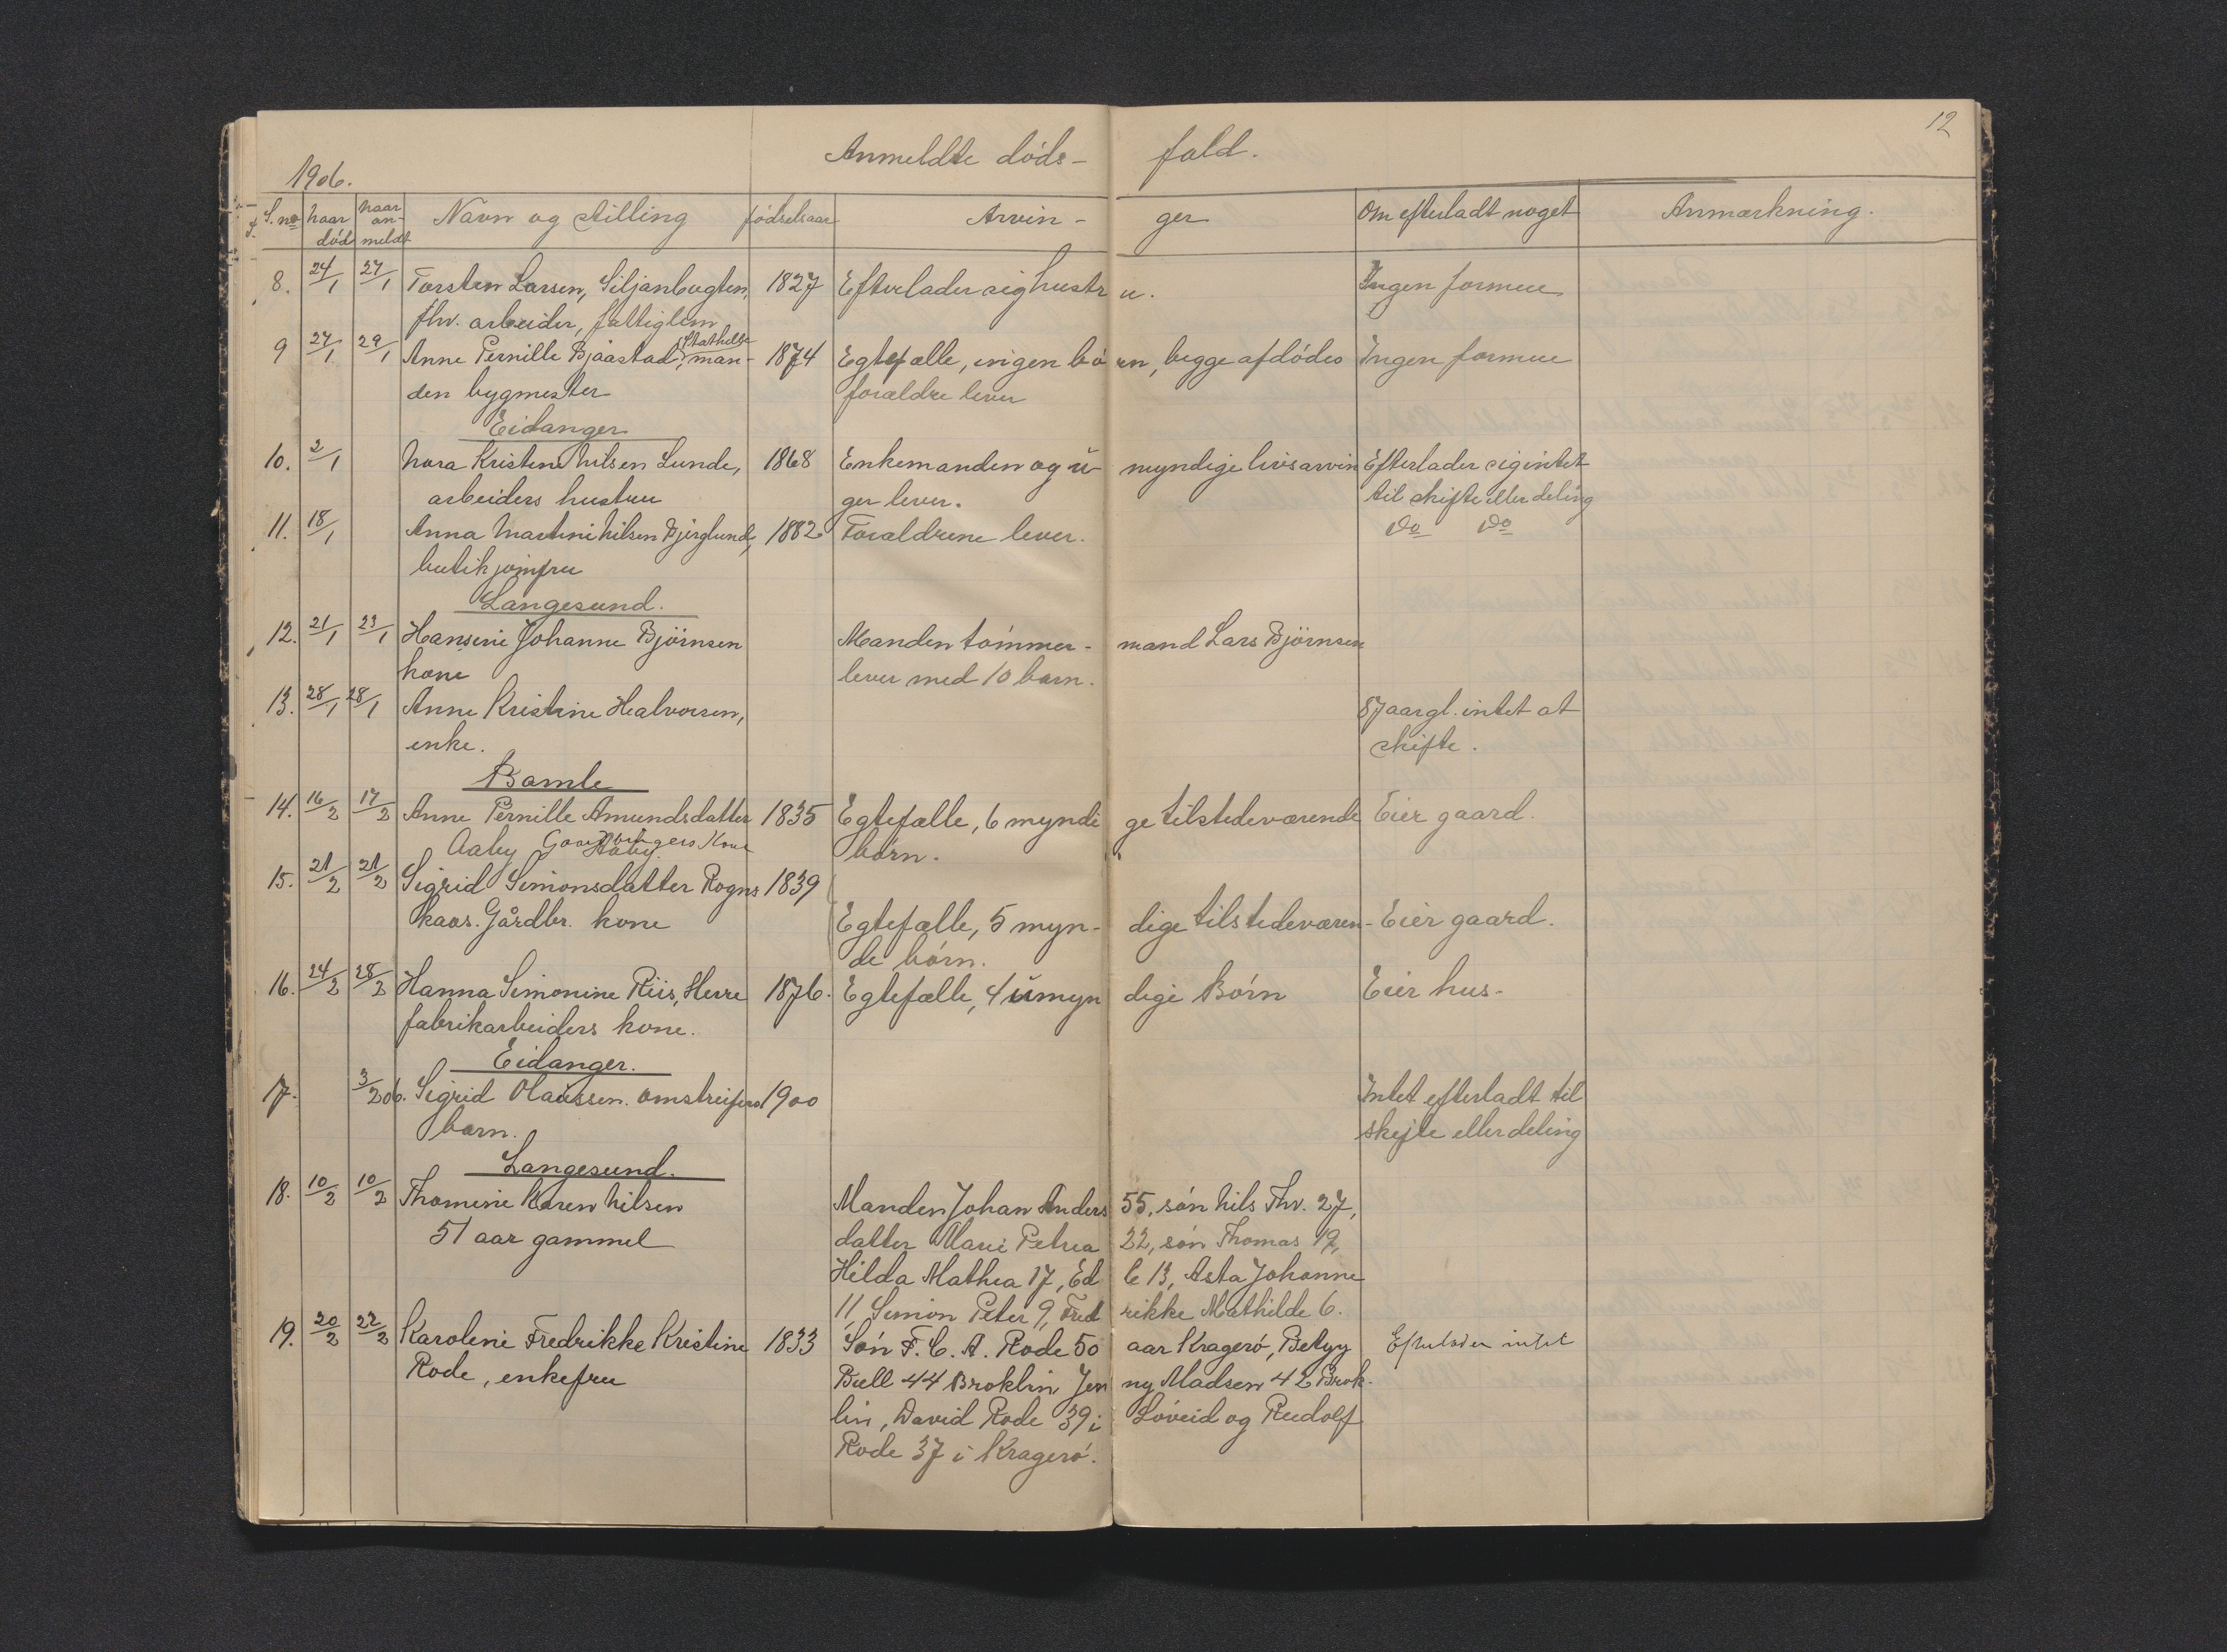 12
Anmeldte døds- fald.
1906.
S. no naar død naar an-meldt Navn og stilling fødselsaar Arvin- ger Om efterladt noget Anmærkning.
8. 24/1 27/1 Torsten Larsen, Siljanbugten, 1827 Efterlader sig hustr u. Ingen formue
fhv. arbeider, fattiglem
Stathelle
9 27/1 29/1 Anne Pernille Bjaastad, man- 1874 Egtefælle, ingen bø rn, begge afdødes Ingen formue
den bygmester forældre lever
Eidanger
10. 2/1 Nora Kristine Nilsen Lunde, 1868 Enkemanden og u- myndige livsarvin Efterlader sig intet
arbeiders hustru ger lever. til skifte eller deling
11. 18/1 Anna Martini Nilsen Bjerglund, 1882 Forældrene lever. Do Do
butikjomfru
Langesund.
12. 21/1 23/1 Hansine Johanne Bjørnsen Manden tømmer- mand Lars Bjørnsen
kone lever med 10 barn.
13. 28/1 28/1 Anne Kristine Halvorsen, 87 aar gl. intet at
enke. skifte.
Bamle
14. 16/2 17/2 Anne Pernille Amundsdatter 1835 Egtefælle, 6 myndi ge tilstedeværende Eier gaard.
Aaby Kone børn.
15. 21/2 21/2 Sigrid Simonsdatter Rogns 1839
kaas. Gårdbr. kone Egtefælle, 5 myn- dige tilstedeværen- Eier gaard.
de børn.
16. 24/2 28/2 Hanna Simonine Riis, Herre 1876. Egtefælle, 4 umyn dige Børn Eier hus.
fabrikarbeiders kone.
Eidanger.
17. 3/2 06. Sigrid Olaussen. omstreifers 1900 Intet efterladt til
barn. skejte eller deling
Langesund.
18. 10/2 10/2 Thomine Karen Nilsen Manden Johan Anders 55, søn Nils Thv. 27,
51 aar gammel datter Marie Petrea 22, søn Thomas 19,
Hilda Mathea 17, Ed le 13, Asta Johanne
11, Simon Peter 9, Fred rikke Mathilde 6.
19. 20/2 22/2 Karoline Fredrikke Kristine 1833 Søn F. C. A. Rode 50 aar Kragerø, Betyy Efterlader intet
Rode, enkefru Bull 44 Broklin Jen ny Madsen 42 Brok-
lin, David Rode 39 i Løveid og Rudolf
Rode 37 i Kragerø.